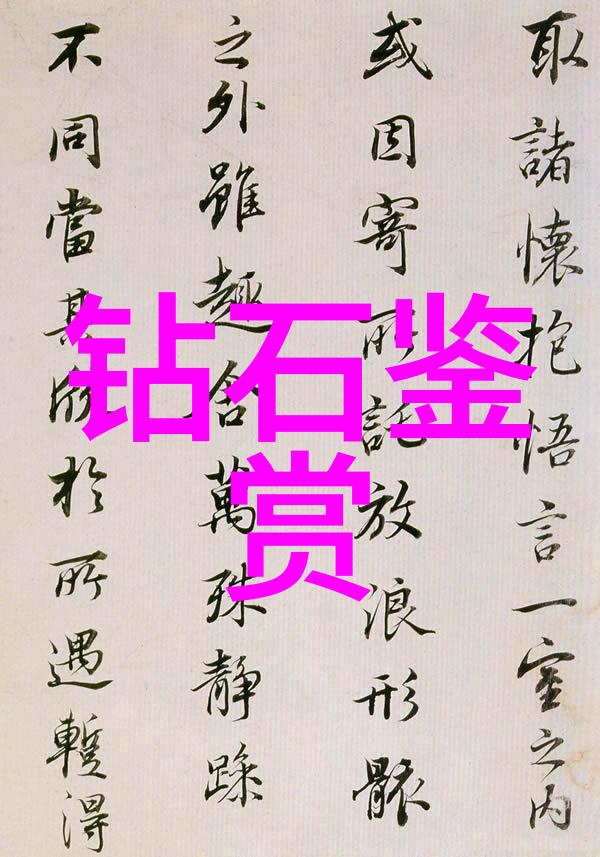 取諸懷抱悟言一室之内
或因寄所託放浪形骸
之外雖趣舍萬殊静躁
不同當其欣於所遇暫得
钻石鉴
赏